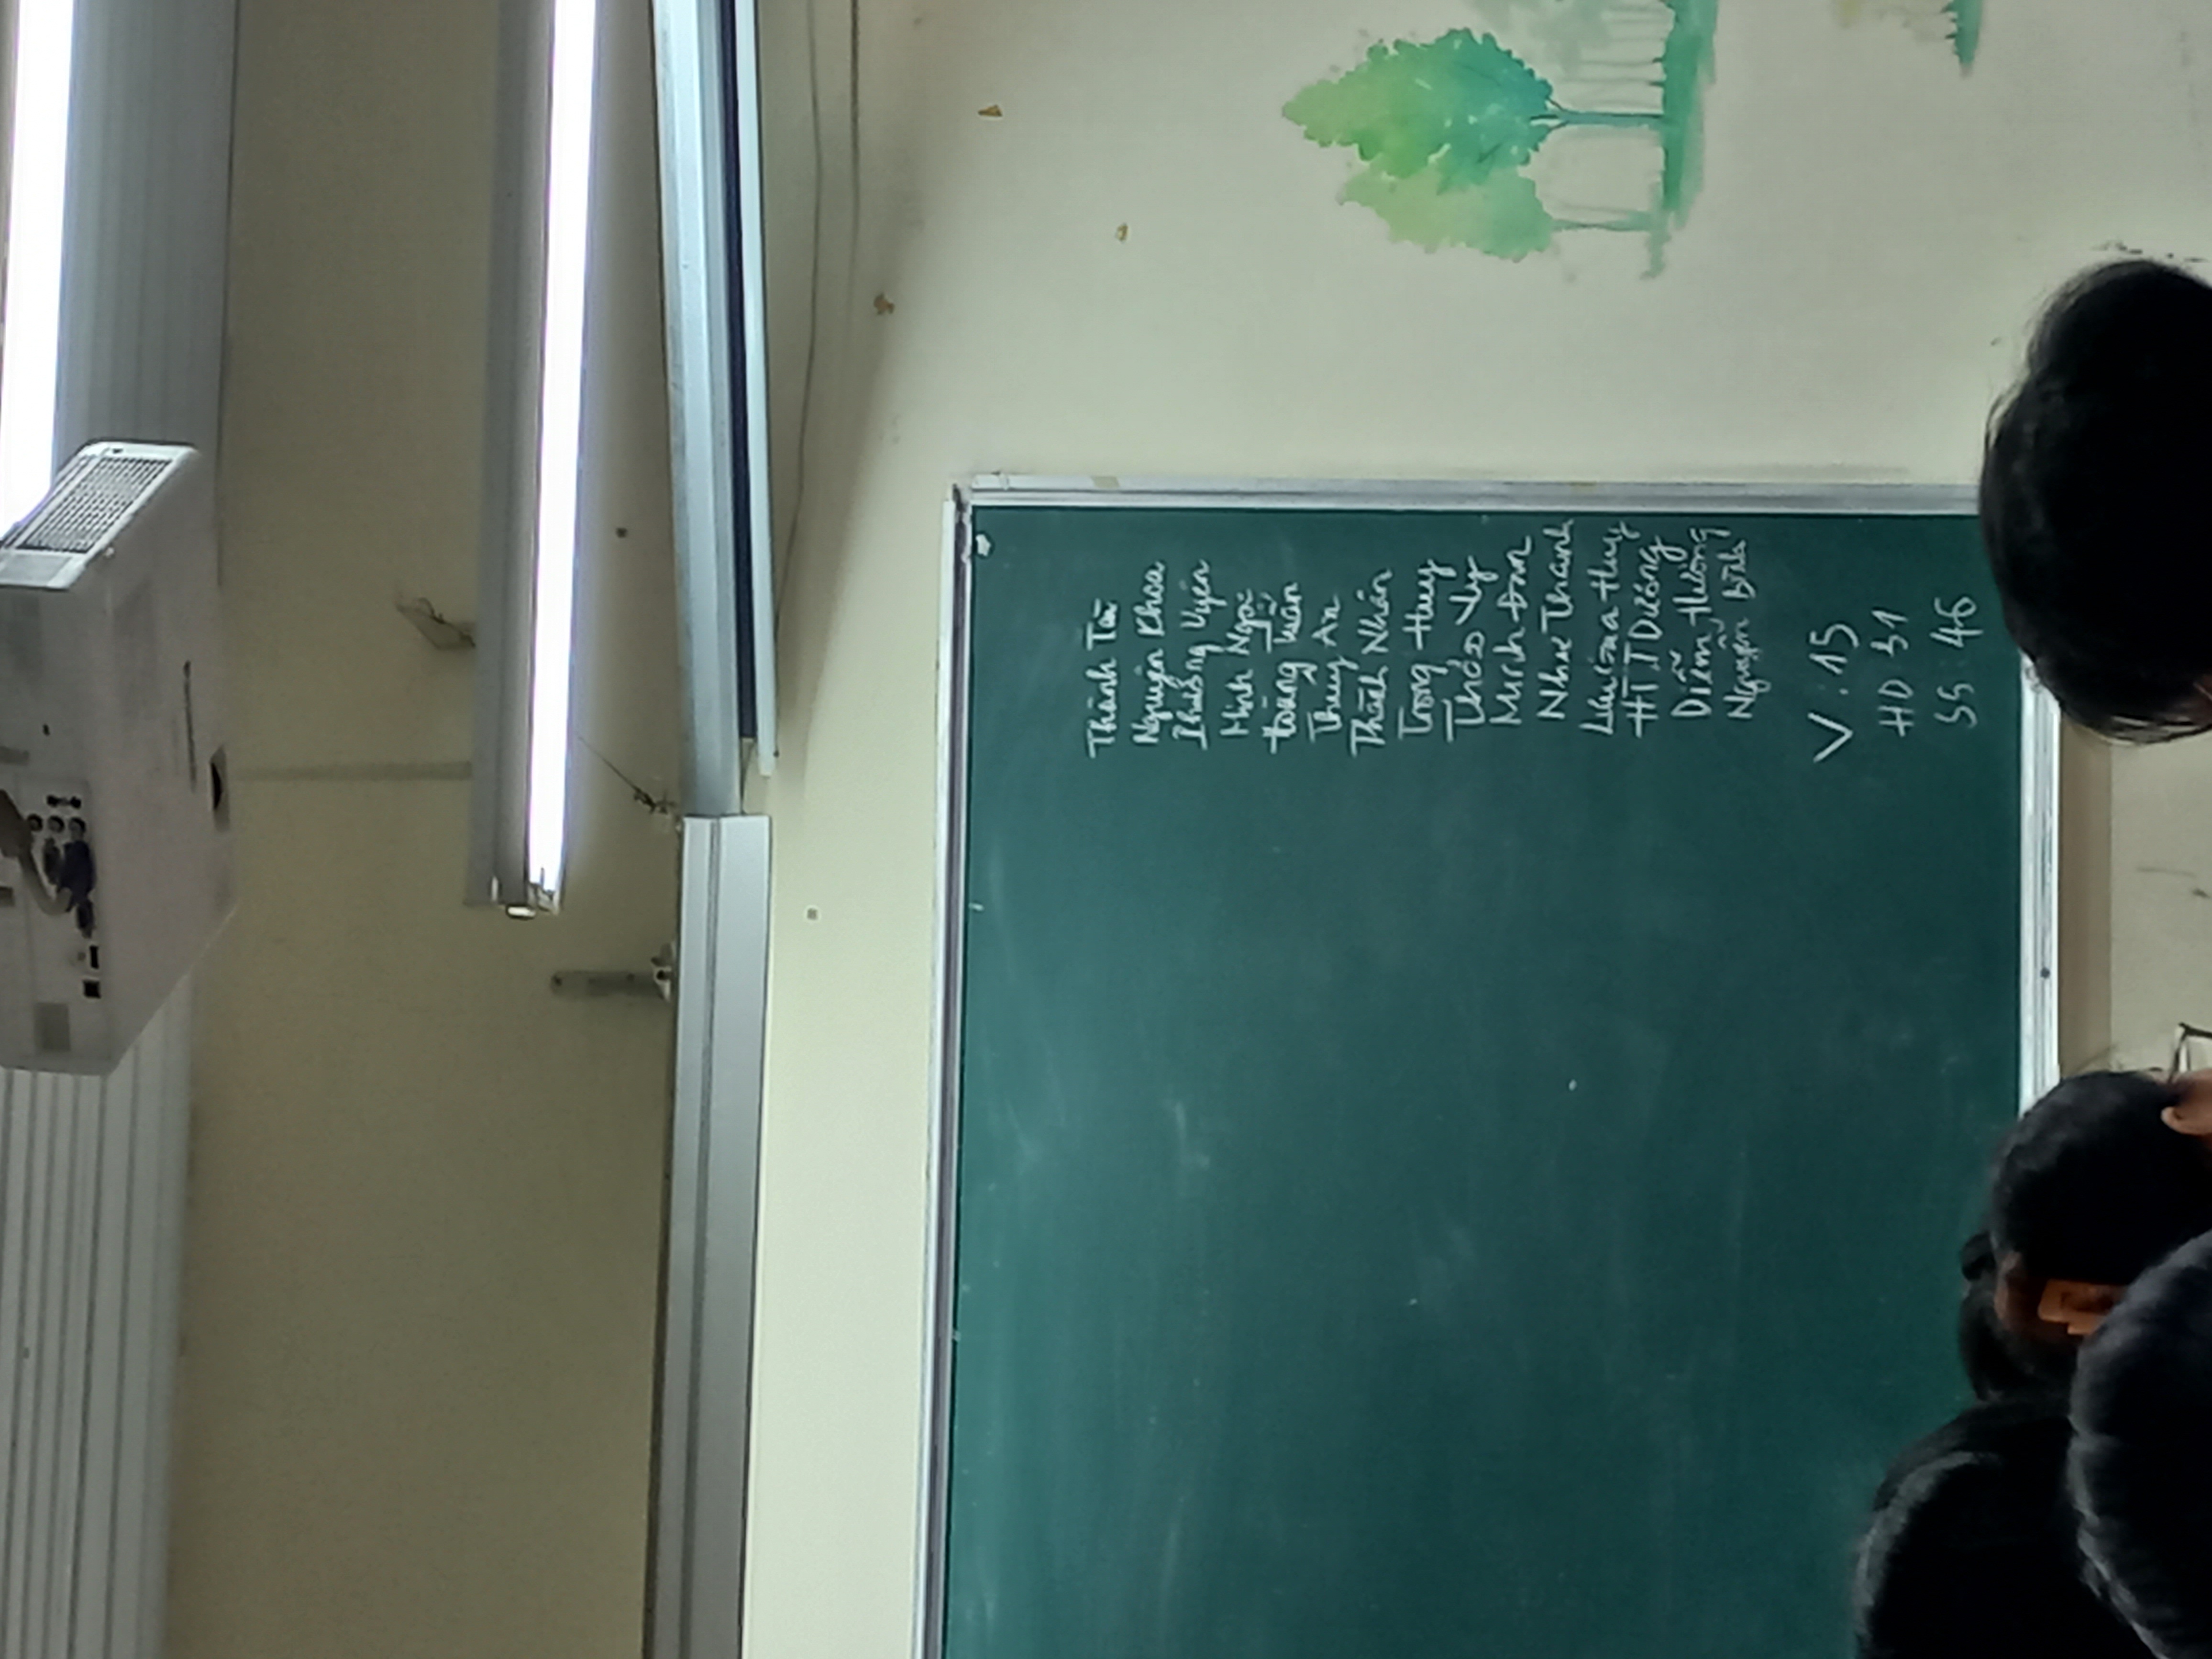 Thành Tài
Nguyên Khoa
Phương Uyên
Minh Ngọc
Hoàng Tuấn
Thuý An
Thành Nhân
Trọng Huy
Thảo Vy
Minh Đan
Như Thanh
Lưu Gia Huy
HT.T Dương
Diễm Hương
Nguyễn Bình
V : 15
HD 31
SS : 46